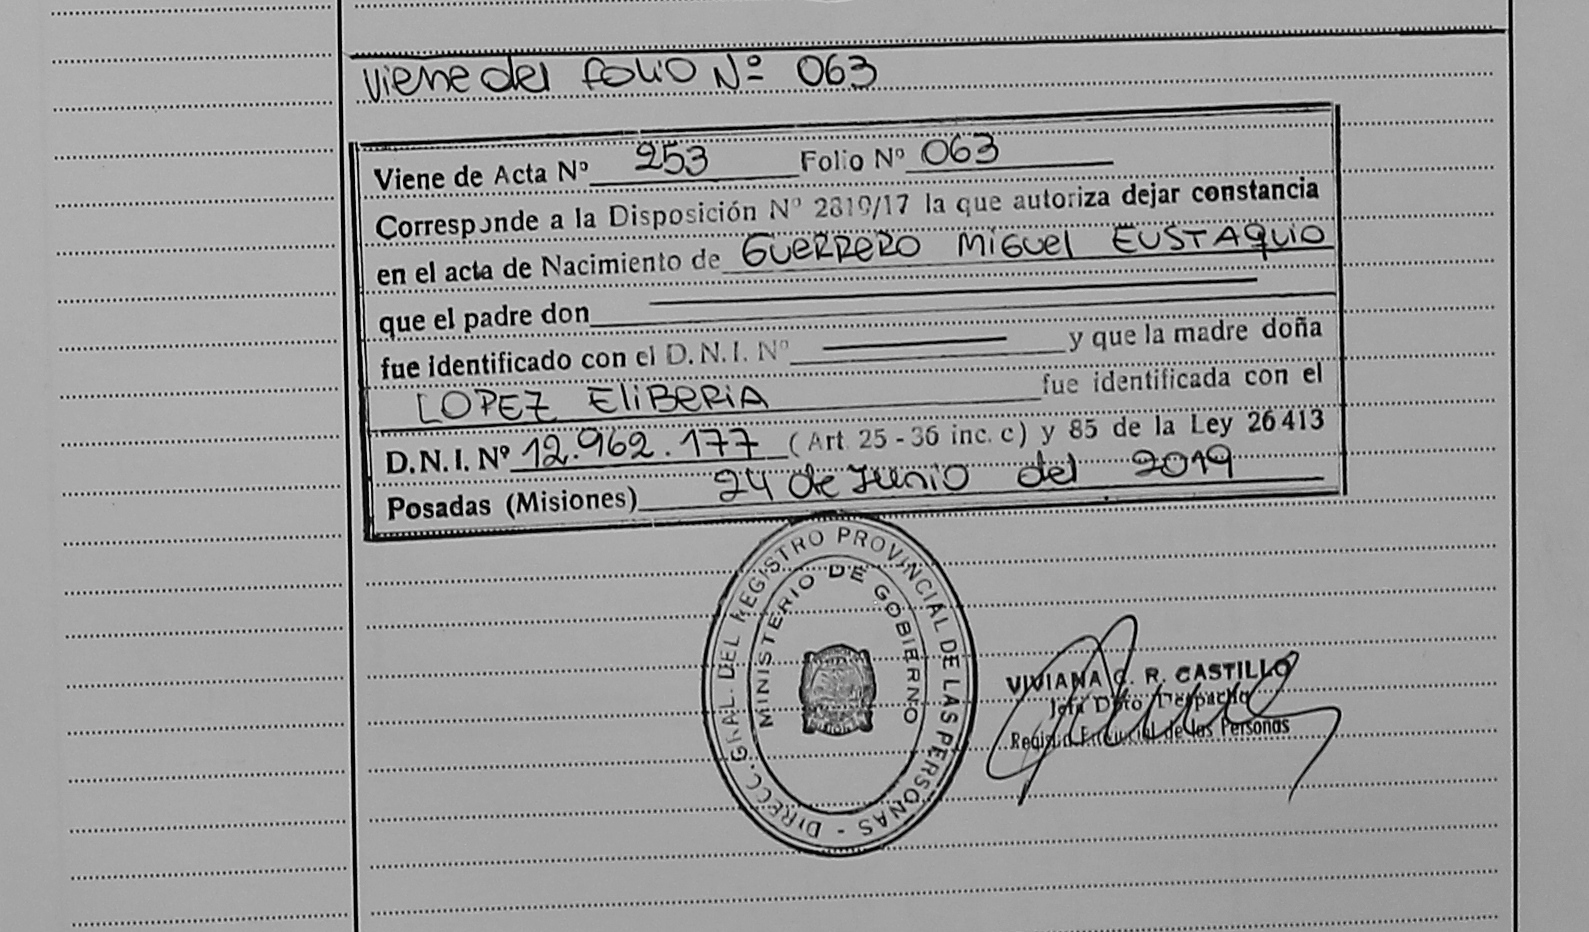 Viene del folio Nº 063
Viene de Acta Nº 253 Folio Nº 063
Corresponde a la Disposición Nº 2819/17 la que autoriza dejar constancia
en el acta de Nacimiento de GUERRERO MIGUEL EUSTAQUIO
que el padre don
fue identificado con el D.N.I. Nº y que la madre doña
LOPEZ ELIBERIA fue identificada con el
D.N.I. Nº 12.962.177 (Art. 25 - 36 inc. c) y 85 de la Ley 26413
Posadas (Misiones) 24 de Junio del 2019
DIRECC. GRAL. DEL REGISTRO PROVINCIAL DE LAS PERSONAS -
MINISTERIO DE GOBIERNO
VIVIANA C. R. CASTILLO
Jefa Dpto Despacho
Registro Provincial de las Personas